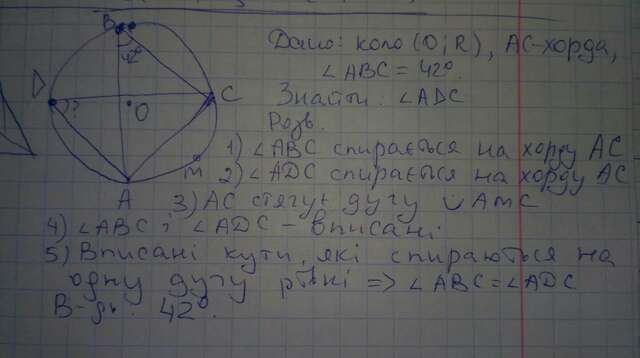 Дано: коло (O; R), AC-хорда,
∠ABC = 42°.
Знайти: ∠ADC
Розв.
1) ∠ABC спирається на хорду AC
2) ∠ADC спирається на хорду AC
3) AC стягує дугу ∪AmC
4) ∠ABC і ∠ADC – вписані
5) Вписані кути, які спираються на
одну дугу рівні => ∠ABC = ∠ADC
В-дь. 42°.
B
42°
D
??
O
C
M
A